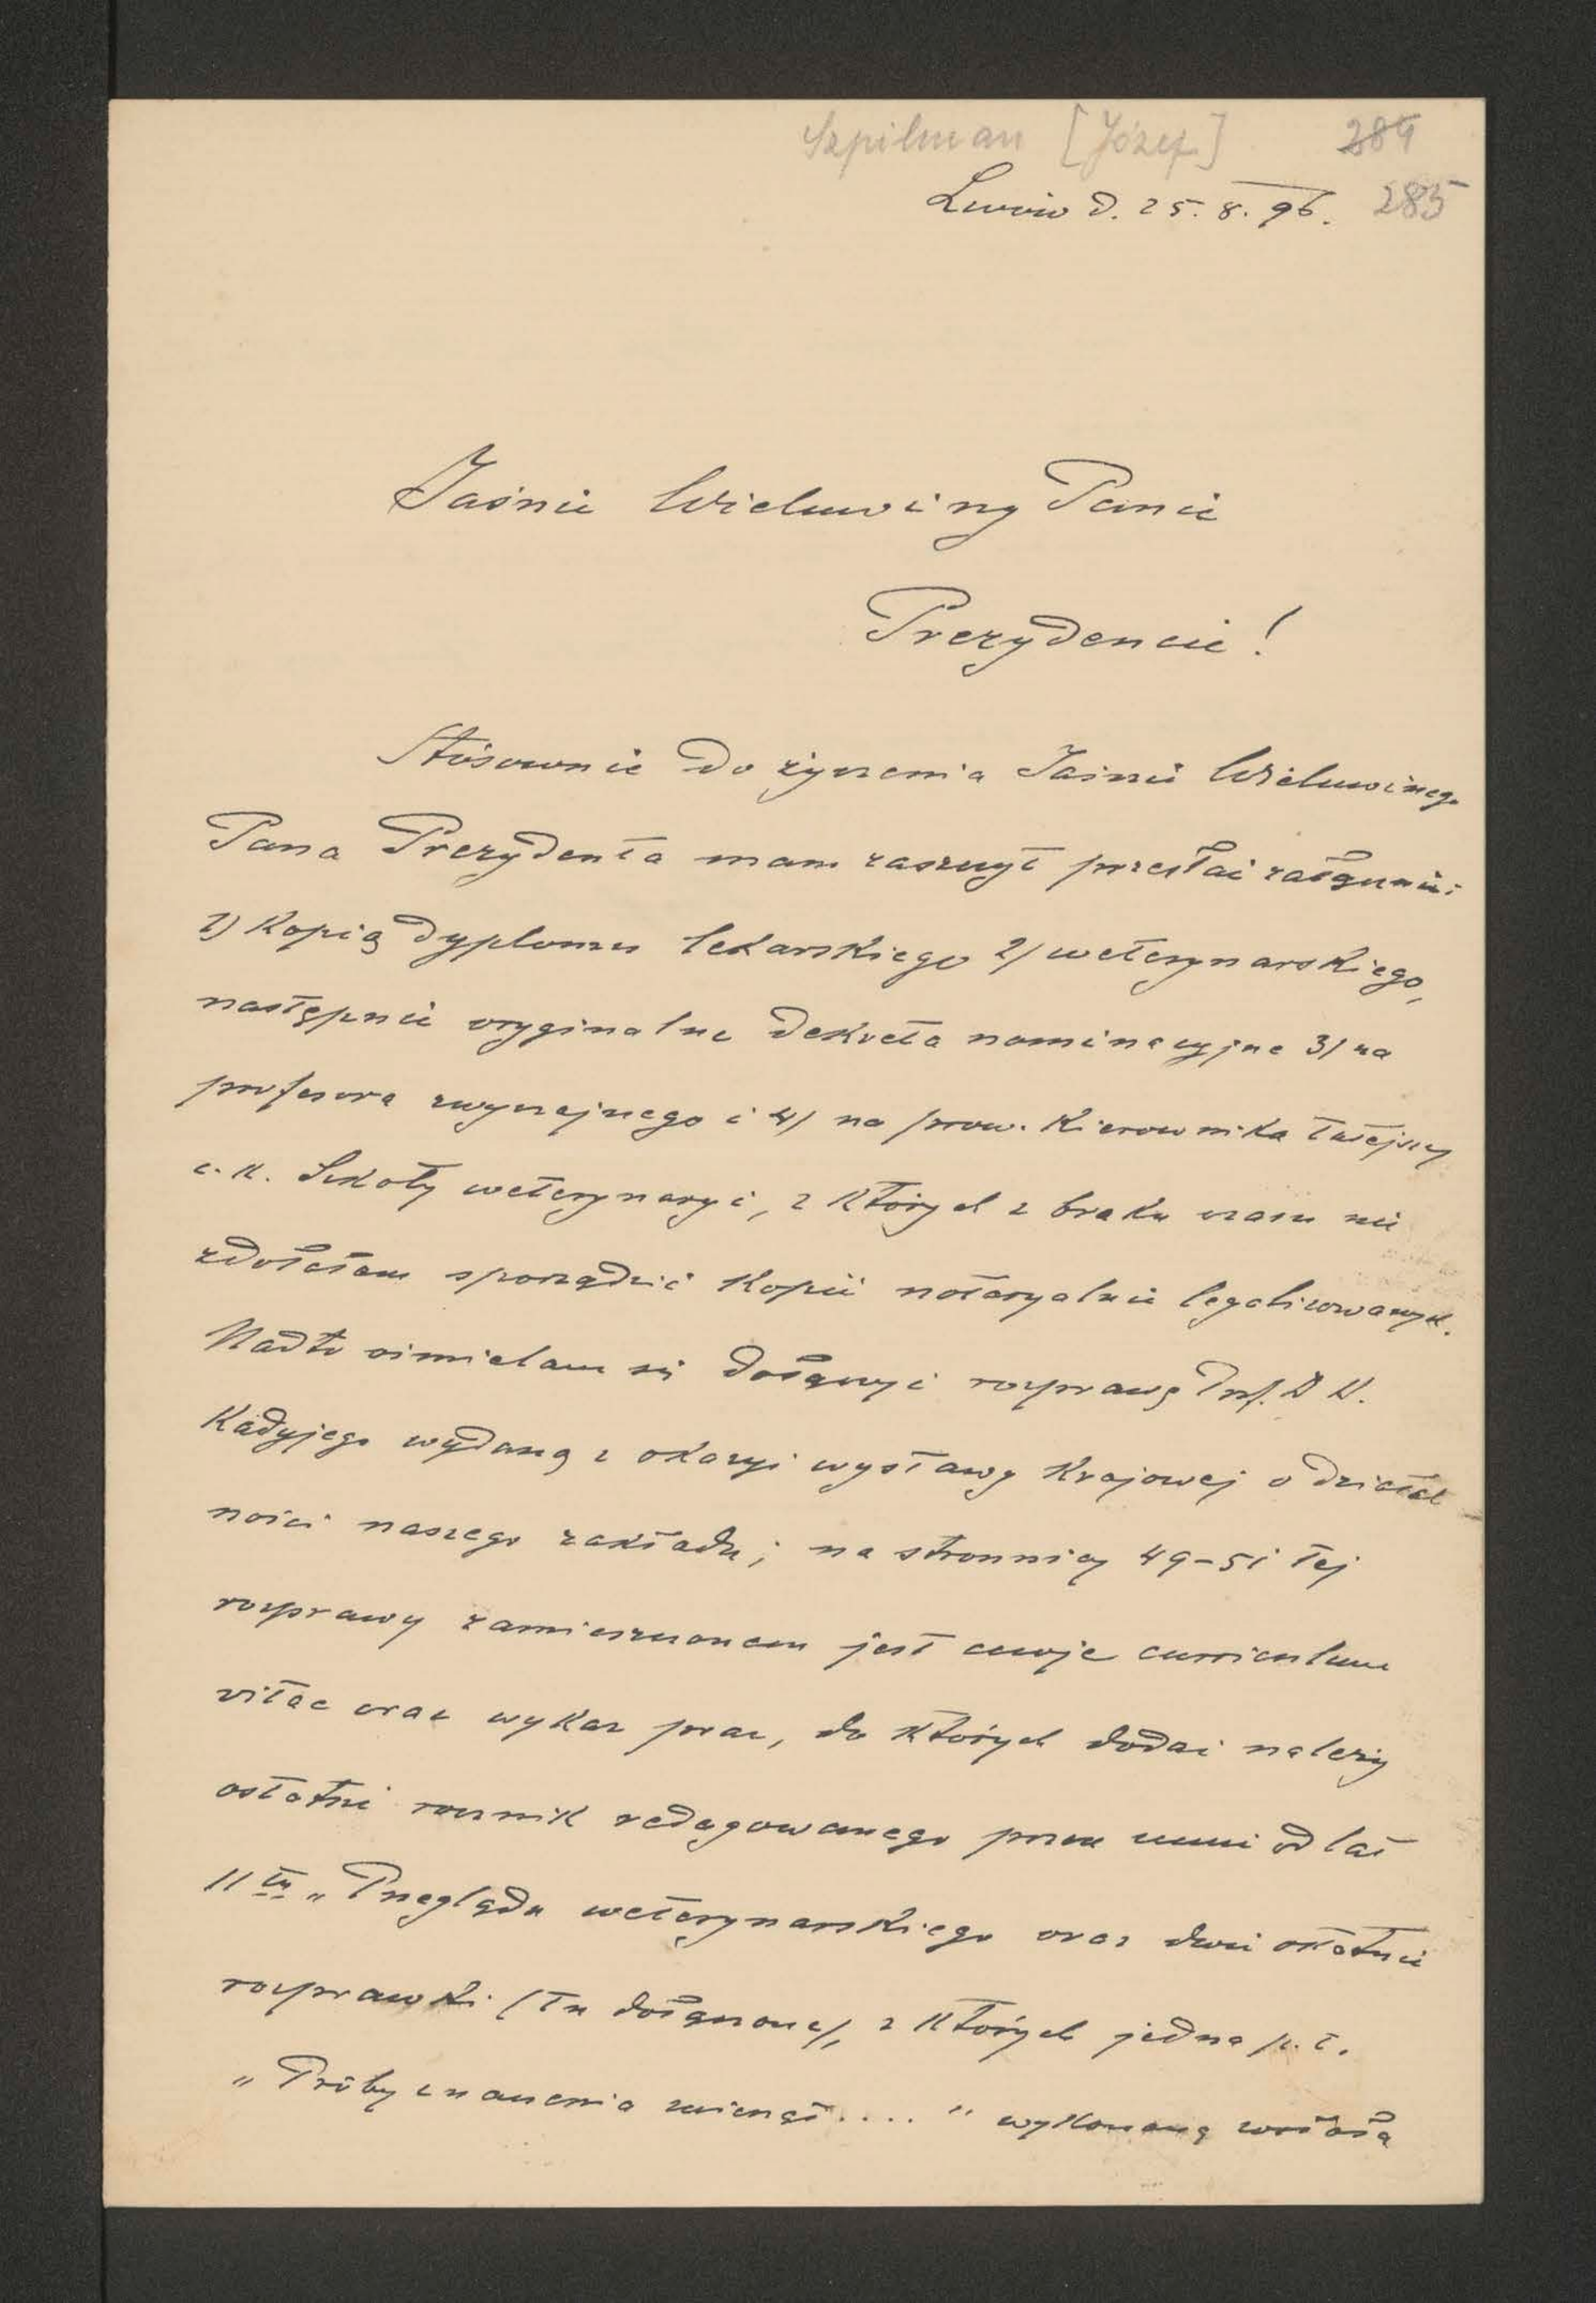 Szpilman [Józef] 284
Lwów d. 25. 8. 96. 285
Jaśnie Wielmożny Panie
Prezydencie!
Stósownie do życzenia Jaśnie Wielmożnego
Pana Prezydenta mam zaszczyt przesłać załącznie:
1) Kopią dyplomu lekarskiego 2) weterynarskiego,
następnie oryginalne dekreta nominacyjne 3) na
profesora zwyczajnego i 4) na prow. Kierownika tutejszej
c. k. Szkoły weterynaryi, z których z braku czasu nie
zdołałem sporządzić kopii notaryalnie legalizowanych.
Nadto ośmielam się dołączyć rozprawę Prof. D
Kadyjego wydaną z okazyi wystawy Krajowej o działal
ności naszego zakładu; na stronnicy 49-51 tej
rozprawy zamieszczonem jest moje curriculum
vitae oraz wykaz prac, do których dodać należy
ostatni rocznik redagowanego przez mnie od lat
11tu „Przeglądu weterynarskiego oraz dwie ostatnie
rozprawki (tu dołączone), z których jedna p. t.
„Próby znaczenia zwierząt...." wykonaną została